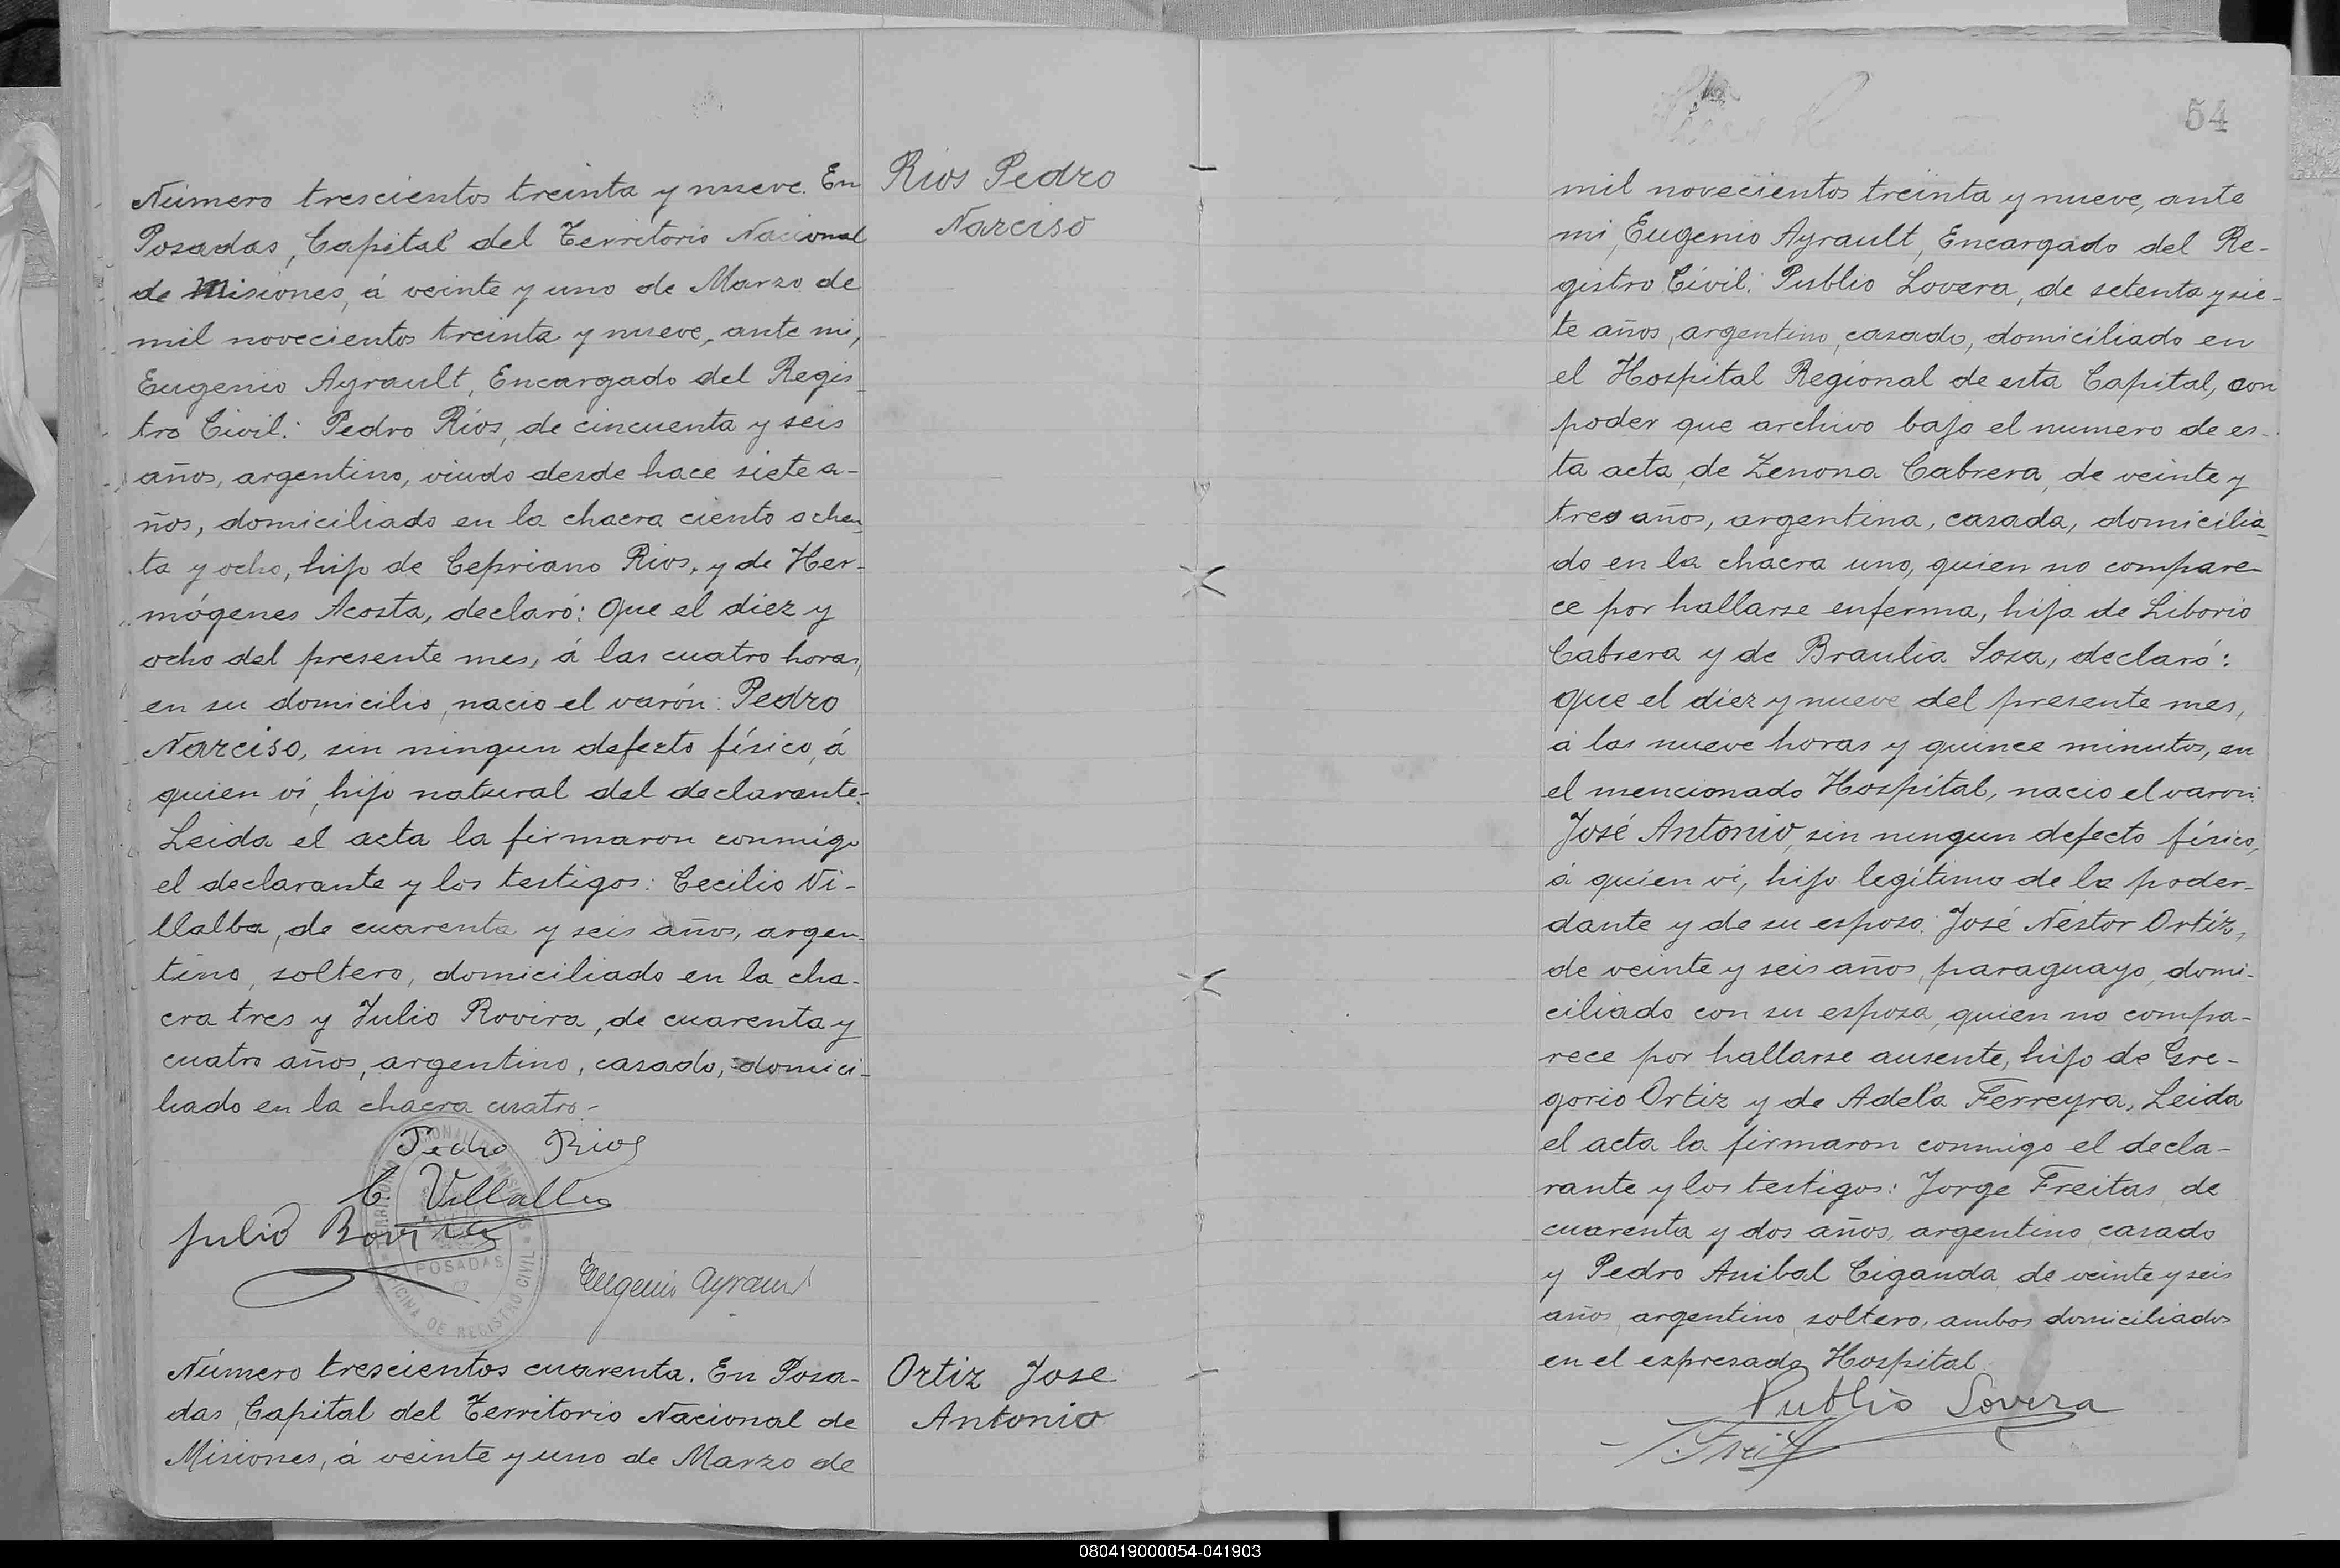 Número trescientos treinta y nueve. En
Posadas, Capital del Territorio Nacional
de Misiones, á veinte y uno de Marzo de
mil novecientos treinta y nueve, ante mi,
Eugenio Ayrault, Encargado del Regis
tro Civil: Pedro Ríos, de cincuenta y seis
años, argentino, viudo desde hace siete a-
ños, domiciliado en la chacra ciento ochen
ta y ocho, hijo de Cepriano Rios, y de Her-
mógenes Acosta, declaró: Que el diez y
ocho del presente mes, á las cuatro horas,
en su domicilio, nacio el varón: Pedro
Narciso, sin ningun defecto físico, á
quien ví, hijo natural del declarante.
Leida el acta la firmaron conmigo
el declarante y los testigos: Cecilio Vi-
llalba, de cuarenta y seis años, argen-
tino, soltero, domiciliado en la cha-
cra tres y Julio Rovira, de cuarenta y
cuatro años, argentino, casado, domici-
liado en la chacra cuatro.-
Pedro Rios
C. Villalba
Julio Rovira
Eugenio Ayrault
POSADAS
OFICINA DE REGISTRO CIVIL
Rios Pedro
Narciso
Número trescientos cuarenta. En Posa-
das, Capital del Territorio Nacional de
Misiones, á veinte y uno de Marzo de
Ortiz Jose
Antonio
54
mil novecientos treinta y nueve, ante
mi, Eugenio Ayrault, Encargado del Re-
gistro Civil: Publio Lovera, de setenta y sie-
te años, argentino, casado, domiciliado en
el Hospital Regional de esta Capital, con
poder que archivo bajo el numero de es-
ta acta, de Zenona Cabrera, de veinte y
tres años, argentina, casada, domicilia-
do en la chacra uno, quien no compare-
ce por hallarse enferma, hija de Liborio
Cabrera y de Braulia Sosa, declaró:
Que el diez y nueve del presente mes,
a las nueve horas y quince minutos, en
el mencionado Hospital, nacio el varon:
José Antonio, sin ningun defecto físico,
á quien ví, hijo legítimo de la poder-
dante y de su esposo: José Néstor Ortíz,
de veinte y seis años, paraguayo, domi-
ciliado con su esposa, quien no compa-
rece por hallarse ausente, hijo de Gre-
gorio Ortiz y de Adela Ferreyra, Leida
el acta la firmaron conmigo el decla-
rante y los testigos: Jorge Freitas, de
cuarenta y dos años, argentino, casado
y Pedro Anibal Ciganda, de veinte y seis
años, argentino, soltero, ambos domiciliados
en el expresado Hospital.
Publio Lovera
080419000054-041903